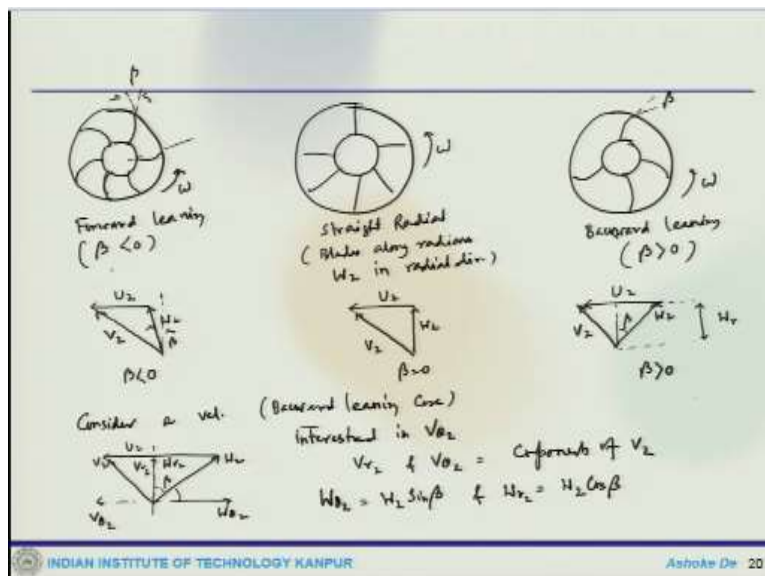 β
ω
Forward leaning
(β <0)
ω
Straight Radial
(Blades along radians
W2 in radial dir.)
β
ω
Backward leaning
(β>0)
U2
V2
W2
β
β<0
U2
V2
W2
β=0
U2
V2
β
W2
Wr
β>0
Consider a vel. (Backward leaning Case)
Interested in Vθ2
Vr2 & Vθ2 = Components of V2
Wθ2 = W2 Sinβ & Wr2 = W2 Cosβ
U2
V2
Vr2
Wr2
W2
β
Vθ2
Wθ2
INDIAN INSTITUTE OF TECHNOLOGY KANPUR
Ashoke De 20